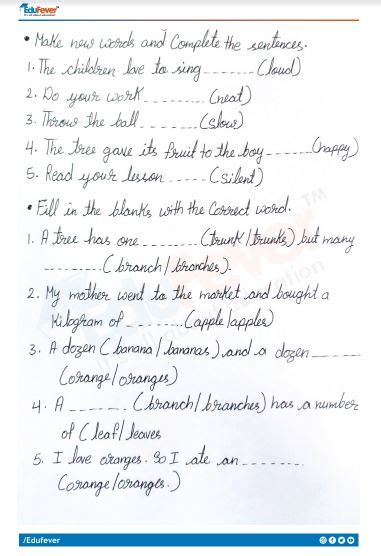 EduFever
• Make new words and Complete the sentences.
1. The children love to sing _______ (loud)
2. Do your work ________ (neat)
3. Throw the ball _______ (slow)
4. The tree gave its fruit to the boy ______ (happy)
5. Read your lesson _____ (silent)
• Fill in the blanks with the Correct word.
1. A tree has one _______ (trunk/trunks) but many
________ (branch/branches).
2. My mother went to the market and bought a
Kilogram of _______ (apple/apples)
3. A dozen (banana/bananas) and a dozen _____
(orange/oranges)
4. A ______ (branch/branches) has a number
of (leaf/leaves
5. I love oranges. So I ate an ________
(orange/oranges.)
/Edufever